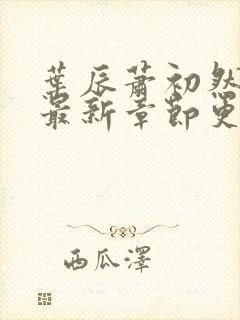 葉辰蕭初然
最新章節更
西瓜澤